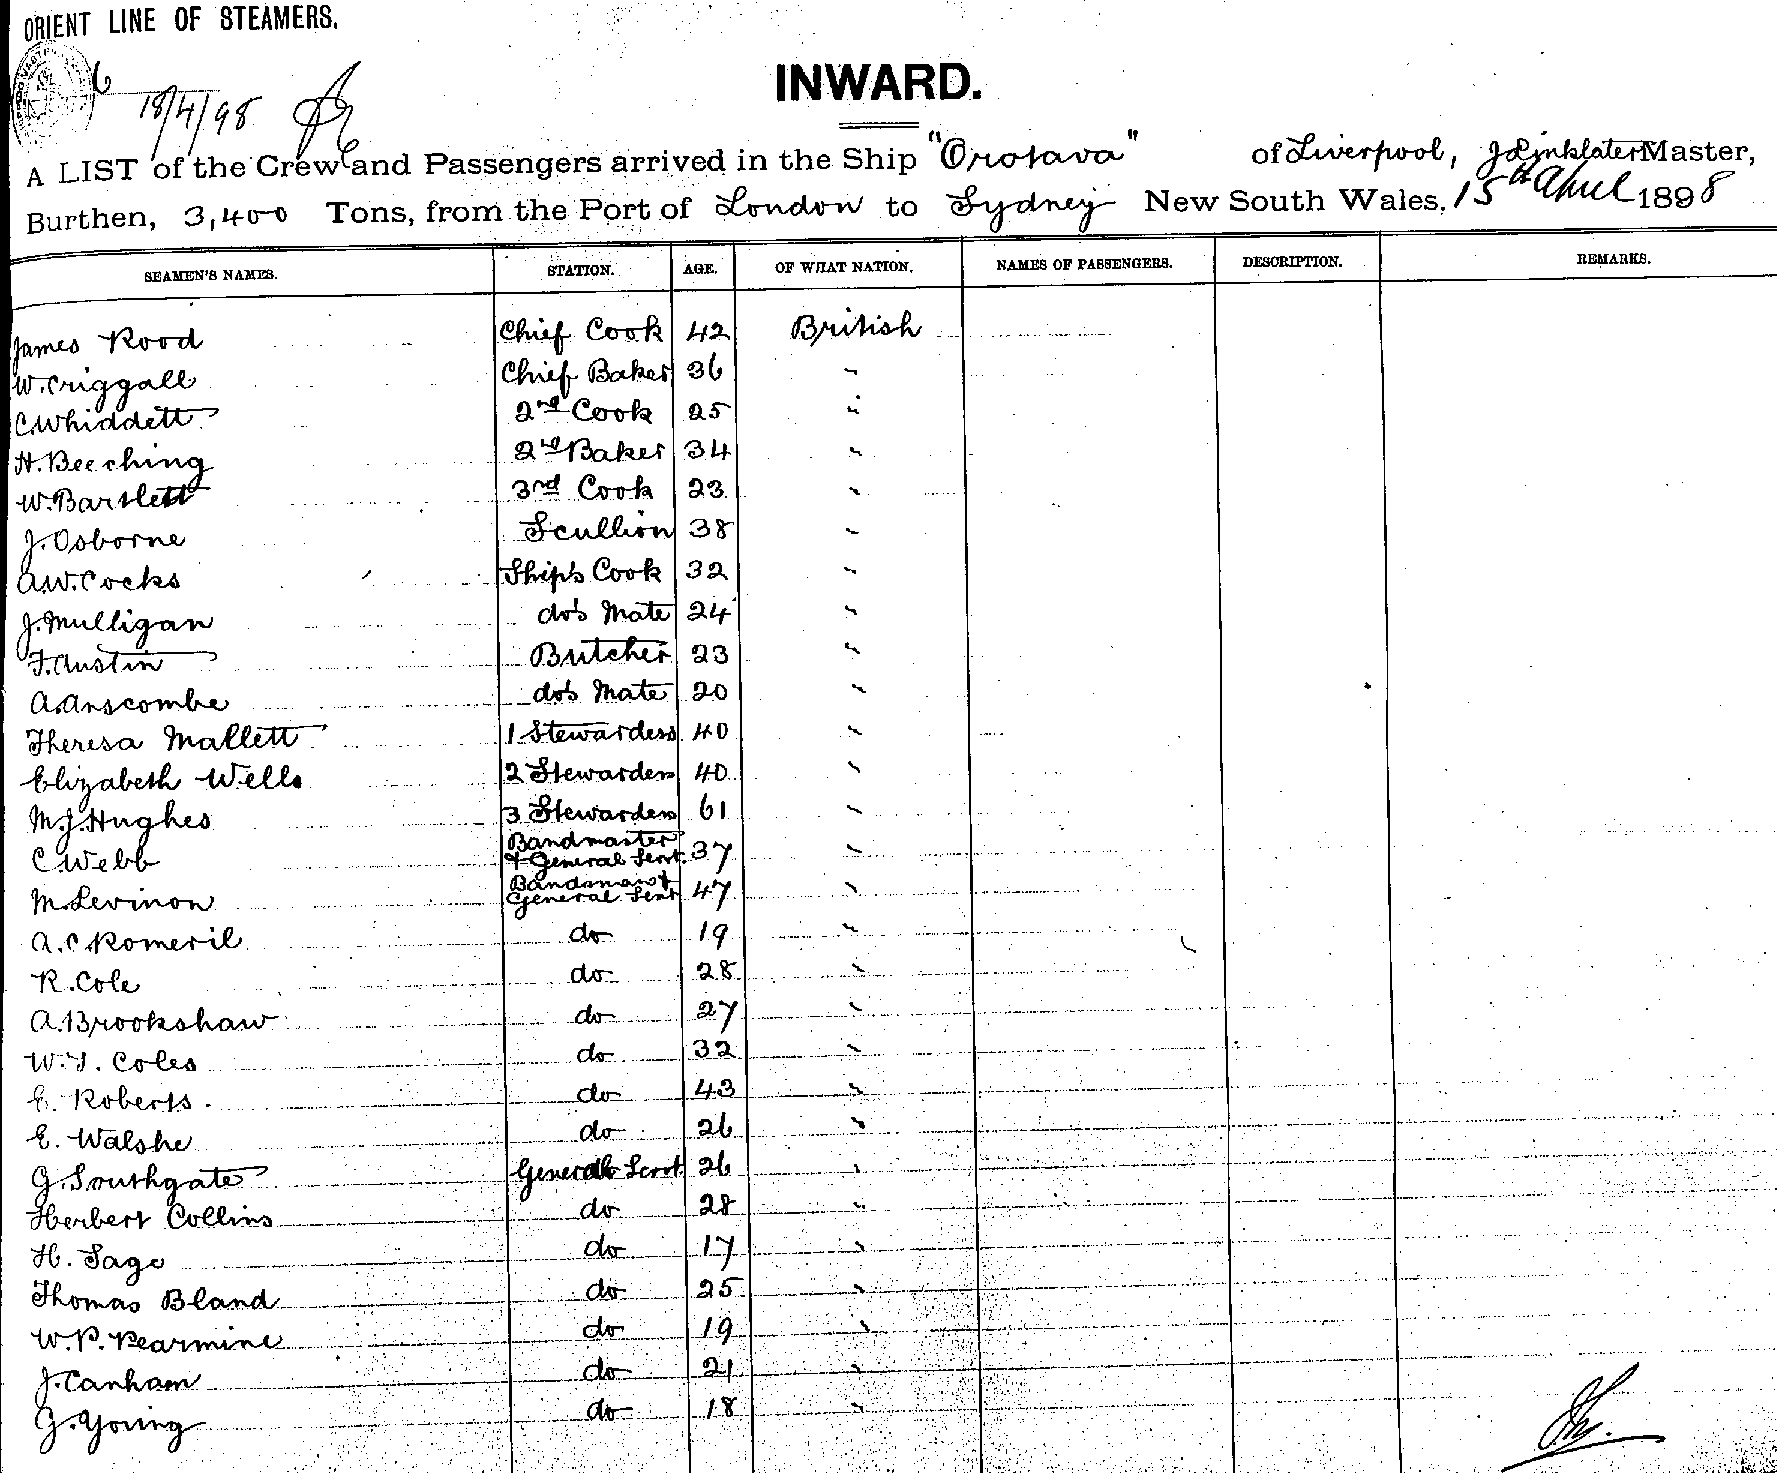 ORIENT LINE OF STEAMERS.
18/4/98
INWARD.
A LIST of the Crew and Passengers arrived in the Ship "Orotava" of Liverpool, J Linklater Master,
Burthen, 3,400 Tons, from the Port of London to Sydney New South Wales, 15th April 1898
SEAMEN'S NAMES. STATION. AGE. OF WHAT NATION. NAMES OF PASSENGERS. DESCRIPTION. REMARKS.
James Rood Chief Cook 42 British
W. Criggall Chief Baker 36 "
C. Whiddett 2nd Cook 25 "
H. Beeching 2nd Baker 34 "
W. Bartlett 3rd Cook 23 "
J. Osborne Scullion 38 "
A.W. Cocks Ship's Cook 32 "
J. Mulligan do's Mate 24 "
F. Austin Butcher 23 "
A. Anscombe do's Mate 20 "
Theresa Mallett 1 Stewardess 40 "
Elizabeth Wells 2 Stewardess 40 "
M.J. Hughes 3 Stewardess 61 "
C. Webb Bandmaster & General Servt 37 "
M. Levinon Bandsman & General Servt 47 "
A. C Romeril do 19 "
R. Cole do 28 "
A. Brookshaw do 27 "
W. T. Coles do 32 "
E. Roberts. do 43 "
E. Walshe do 26 "
G. Southgate General Servt 26 "
Herbert Collins do 28 "
H. Sage do 17 "
Thomas Bland do 25 "
W. P. Pearmine do 19 "
J. Canham do 21 "
J. Young do 18 "